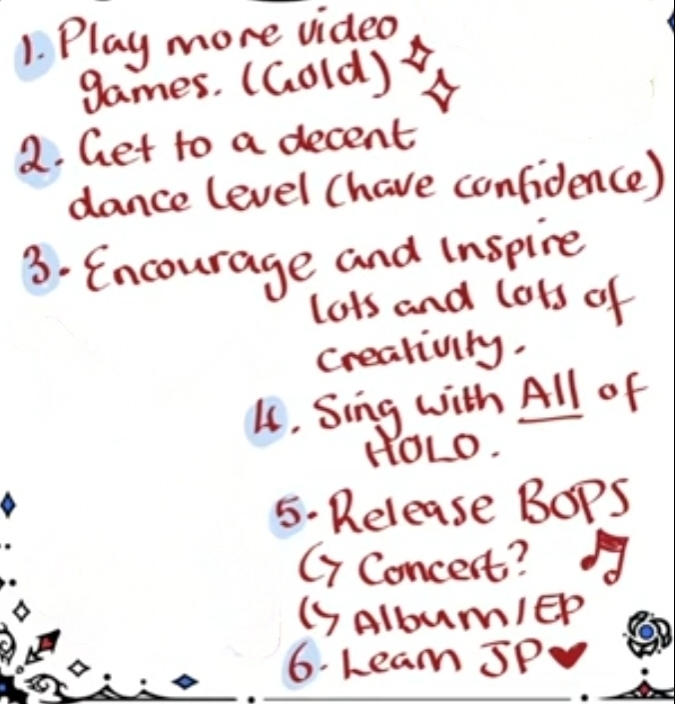 1. Play more video
games. (Gold)
2. Get to a decent
dance level (have confidence)
3. Encourage and Inspire
lots and lots of
creativity.
4. Sing with All of
HOLO.
5. Release BOPS
↳ Concert?
↳ Album/EP
6. Learn JP♥